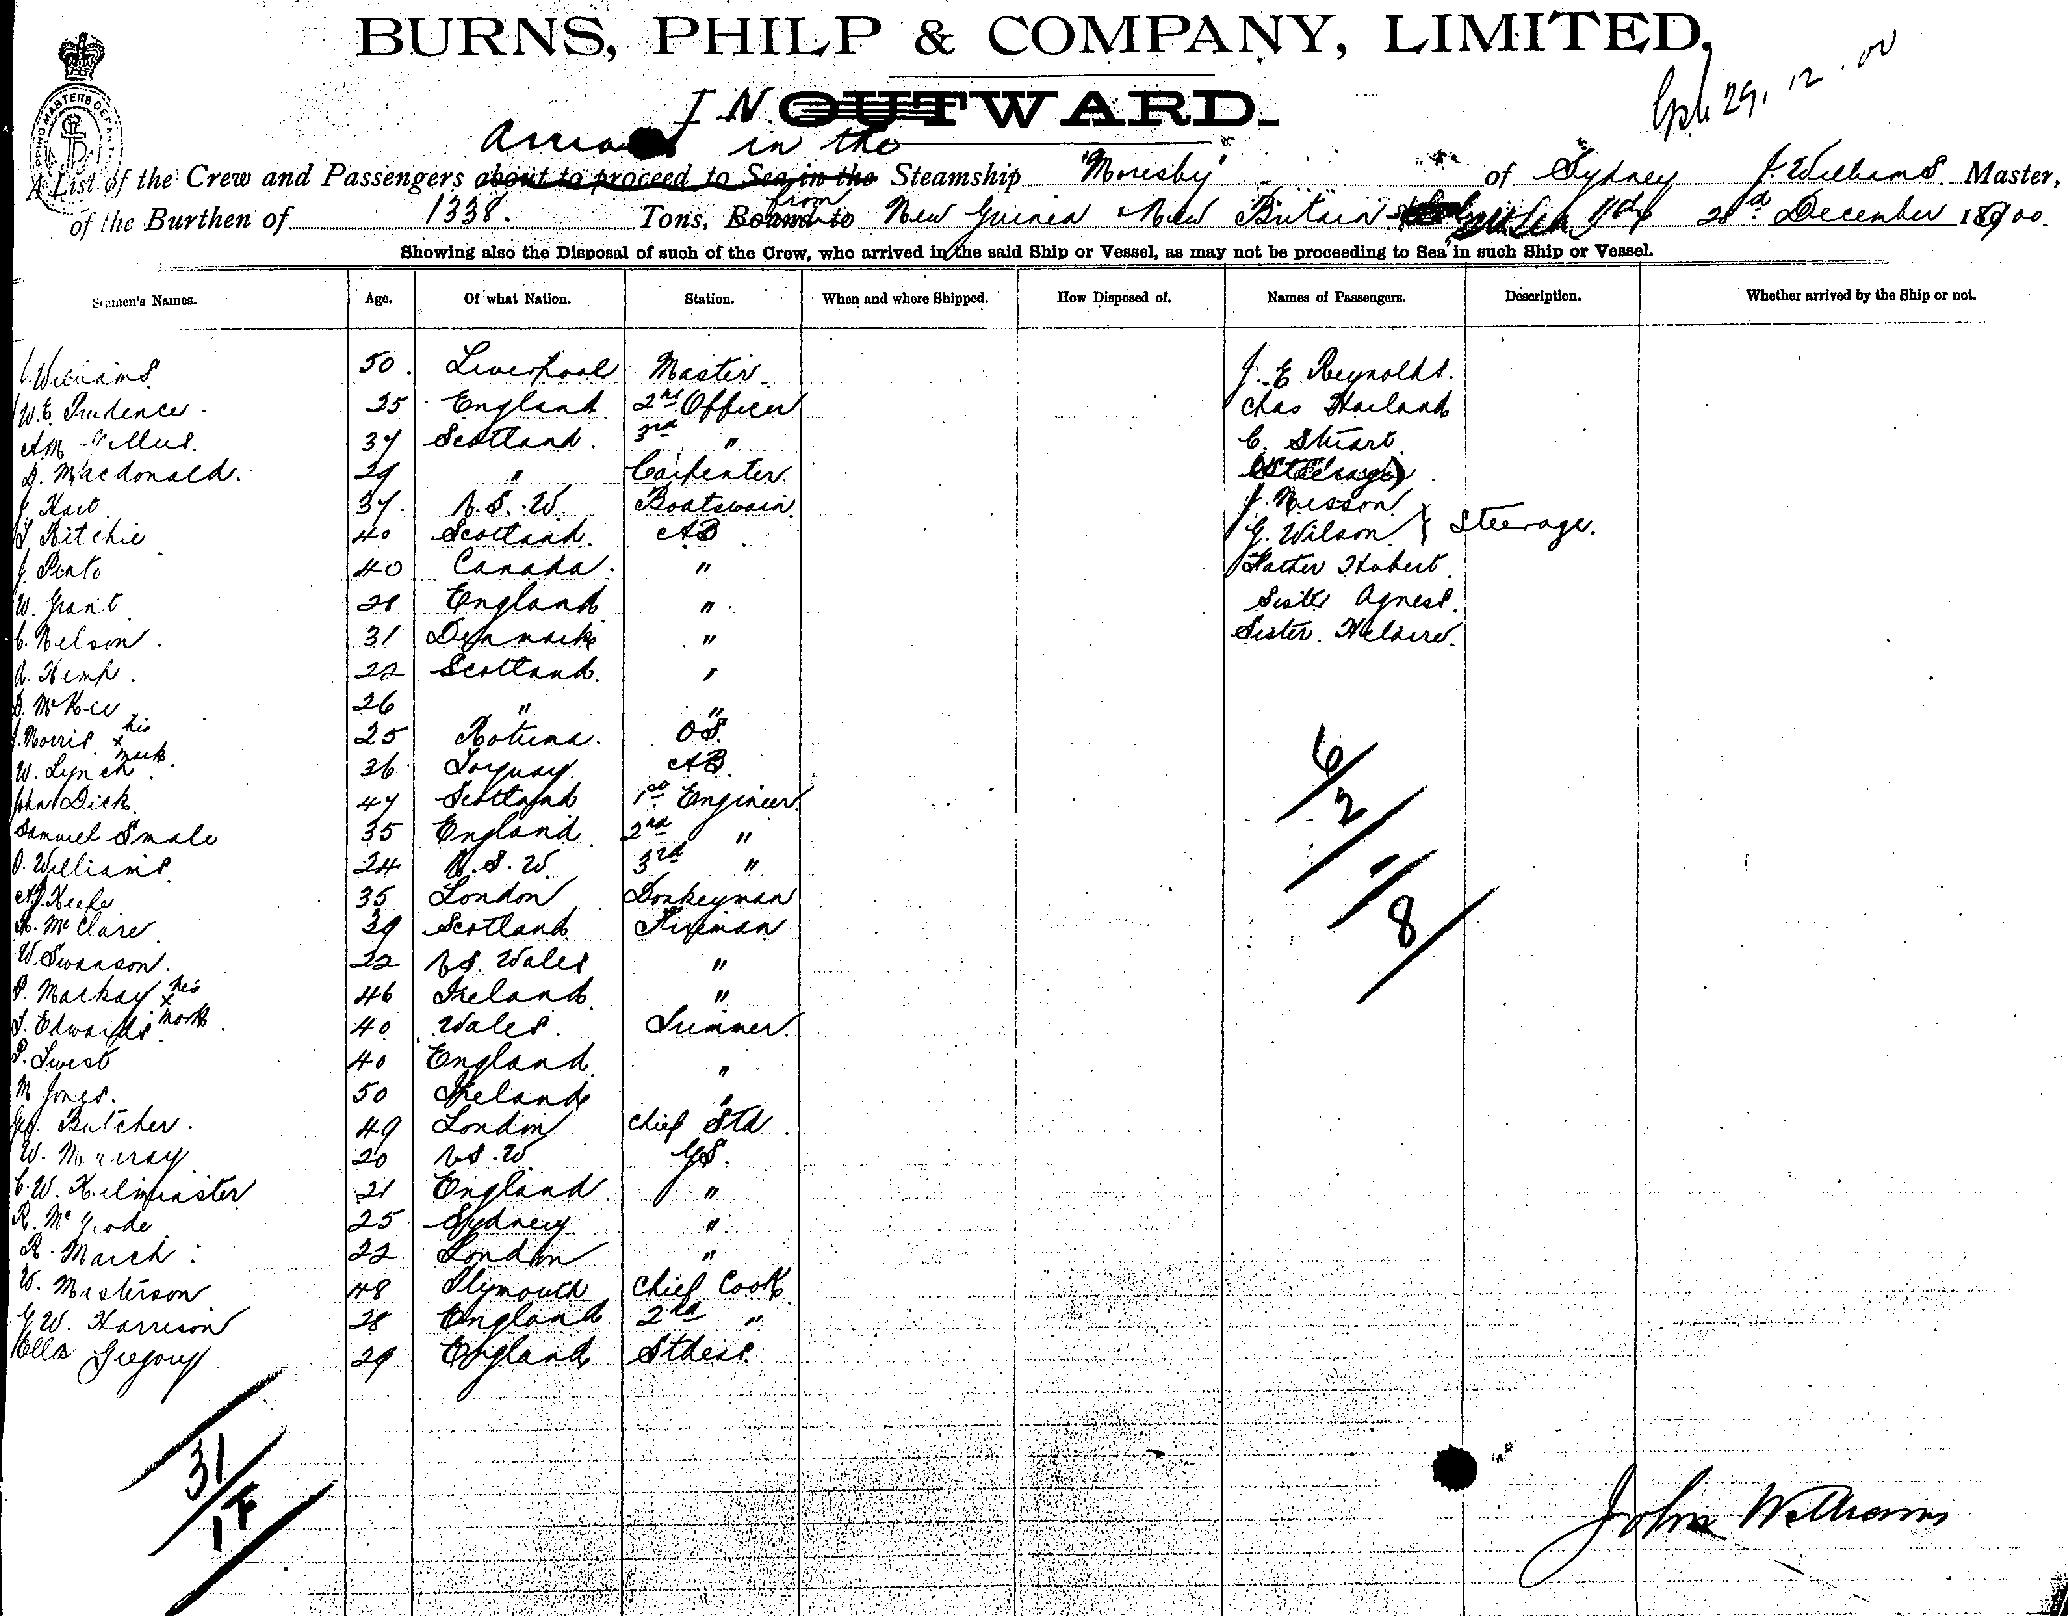 BURNS, PHILP & COMPANY, LIMITED,
29.12.00
IN OUTWARD.
in the
A List of the Crew and Passengers about to proceed to Sea in the Steamship "Moresby" of Sydney J. Williams Master,
from
of the Burthen of 1338. Tons, Bound to New Guinea & New Britain 28 December 1900.
Showing also the Disposal of such of the Crew, who arrived in the said Ship or Vessel, as may not be proceeding to Sea in such Ship or Vessel.
Seamen's Names. Age. Of what Nation. Station. When and where Shipped. How Disposed of. Names of Passengers. Description. Whether arrived by the Ship or not.
J. Williams 50. Liverpool Master J. E Reynolds.
W.E. Prudence 25 England 2nd Officer Chas
A M 37 Scotland. 3rd " C. Stuart
D. Macdonald. 29 " Carpenter (Steerage)
J. Hart 37. N.S.W. Boatswain J. Nisson
Ritchie 40 Scotland. AB G. Wilson } Steerage.
J. 40 Canada. " Father Hubert
W. Grant 28 England " Sister Agnes.
C. Nelson. 31 Denmark " Sister Helaire.
A. Kemp. 22 Scotland. "
D. McKee 26 " "
J. Morris his x mark 25 Rotuma. OS.
W. Lynch 36 Torquay AB.
John Dick 47 Scotland 1st Engineer
Samuel Smale 35 England 2nd "
Williams. 24 N.S.W. 3rd "
A. Keefe 35 London Donkeyman
McClare 39 Scotland Fireman
W. Swanson. 22 N.S. Wales "
P. Mackay his x mark 46 Ireland "
Edwards 40 Wales. Trimmer.
40 England. "
M Jones. 50 Ireland "
Geo. Butcher. 49 London Chief Std.
W. Murray 20 N.S.W GS.
C. W. Kilminster 21 England "
R. McGrode 25 Sydney "
R. March 22 London "
W. Masterson 48 Plymouth Chief Cook
G W. Harrison 28 England 2nd "
Ella Gregory 29 England Stdess.
6/2/1/8
31/1F
John Williams